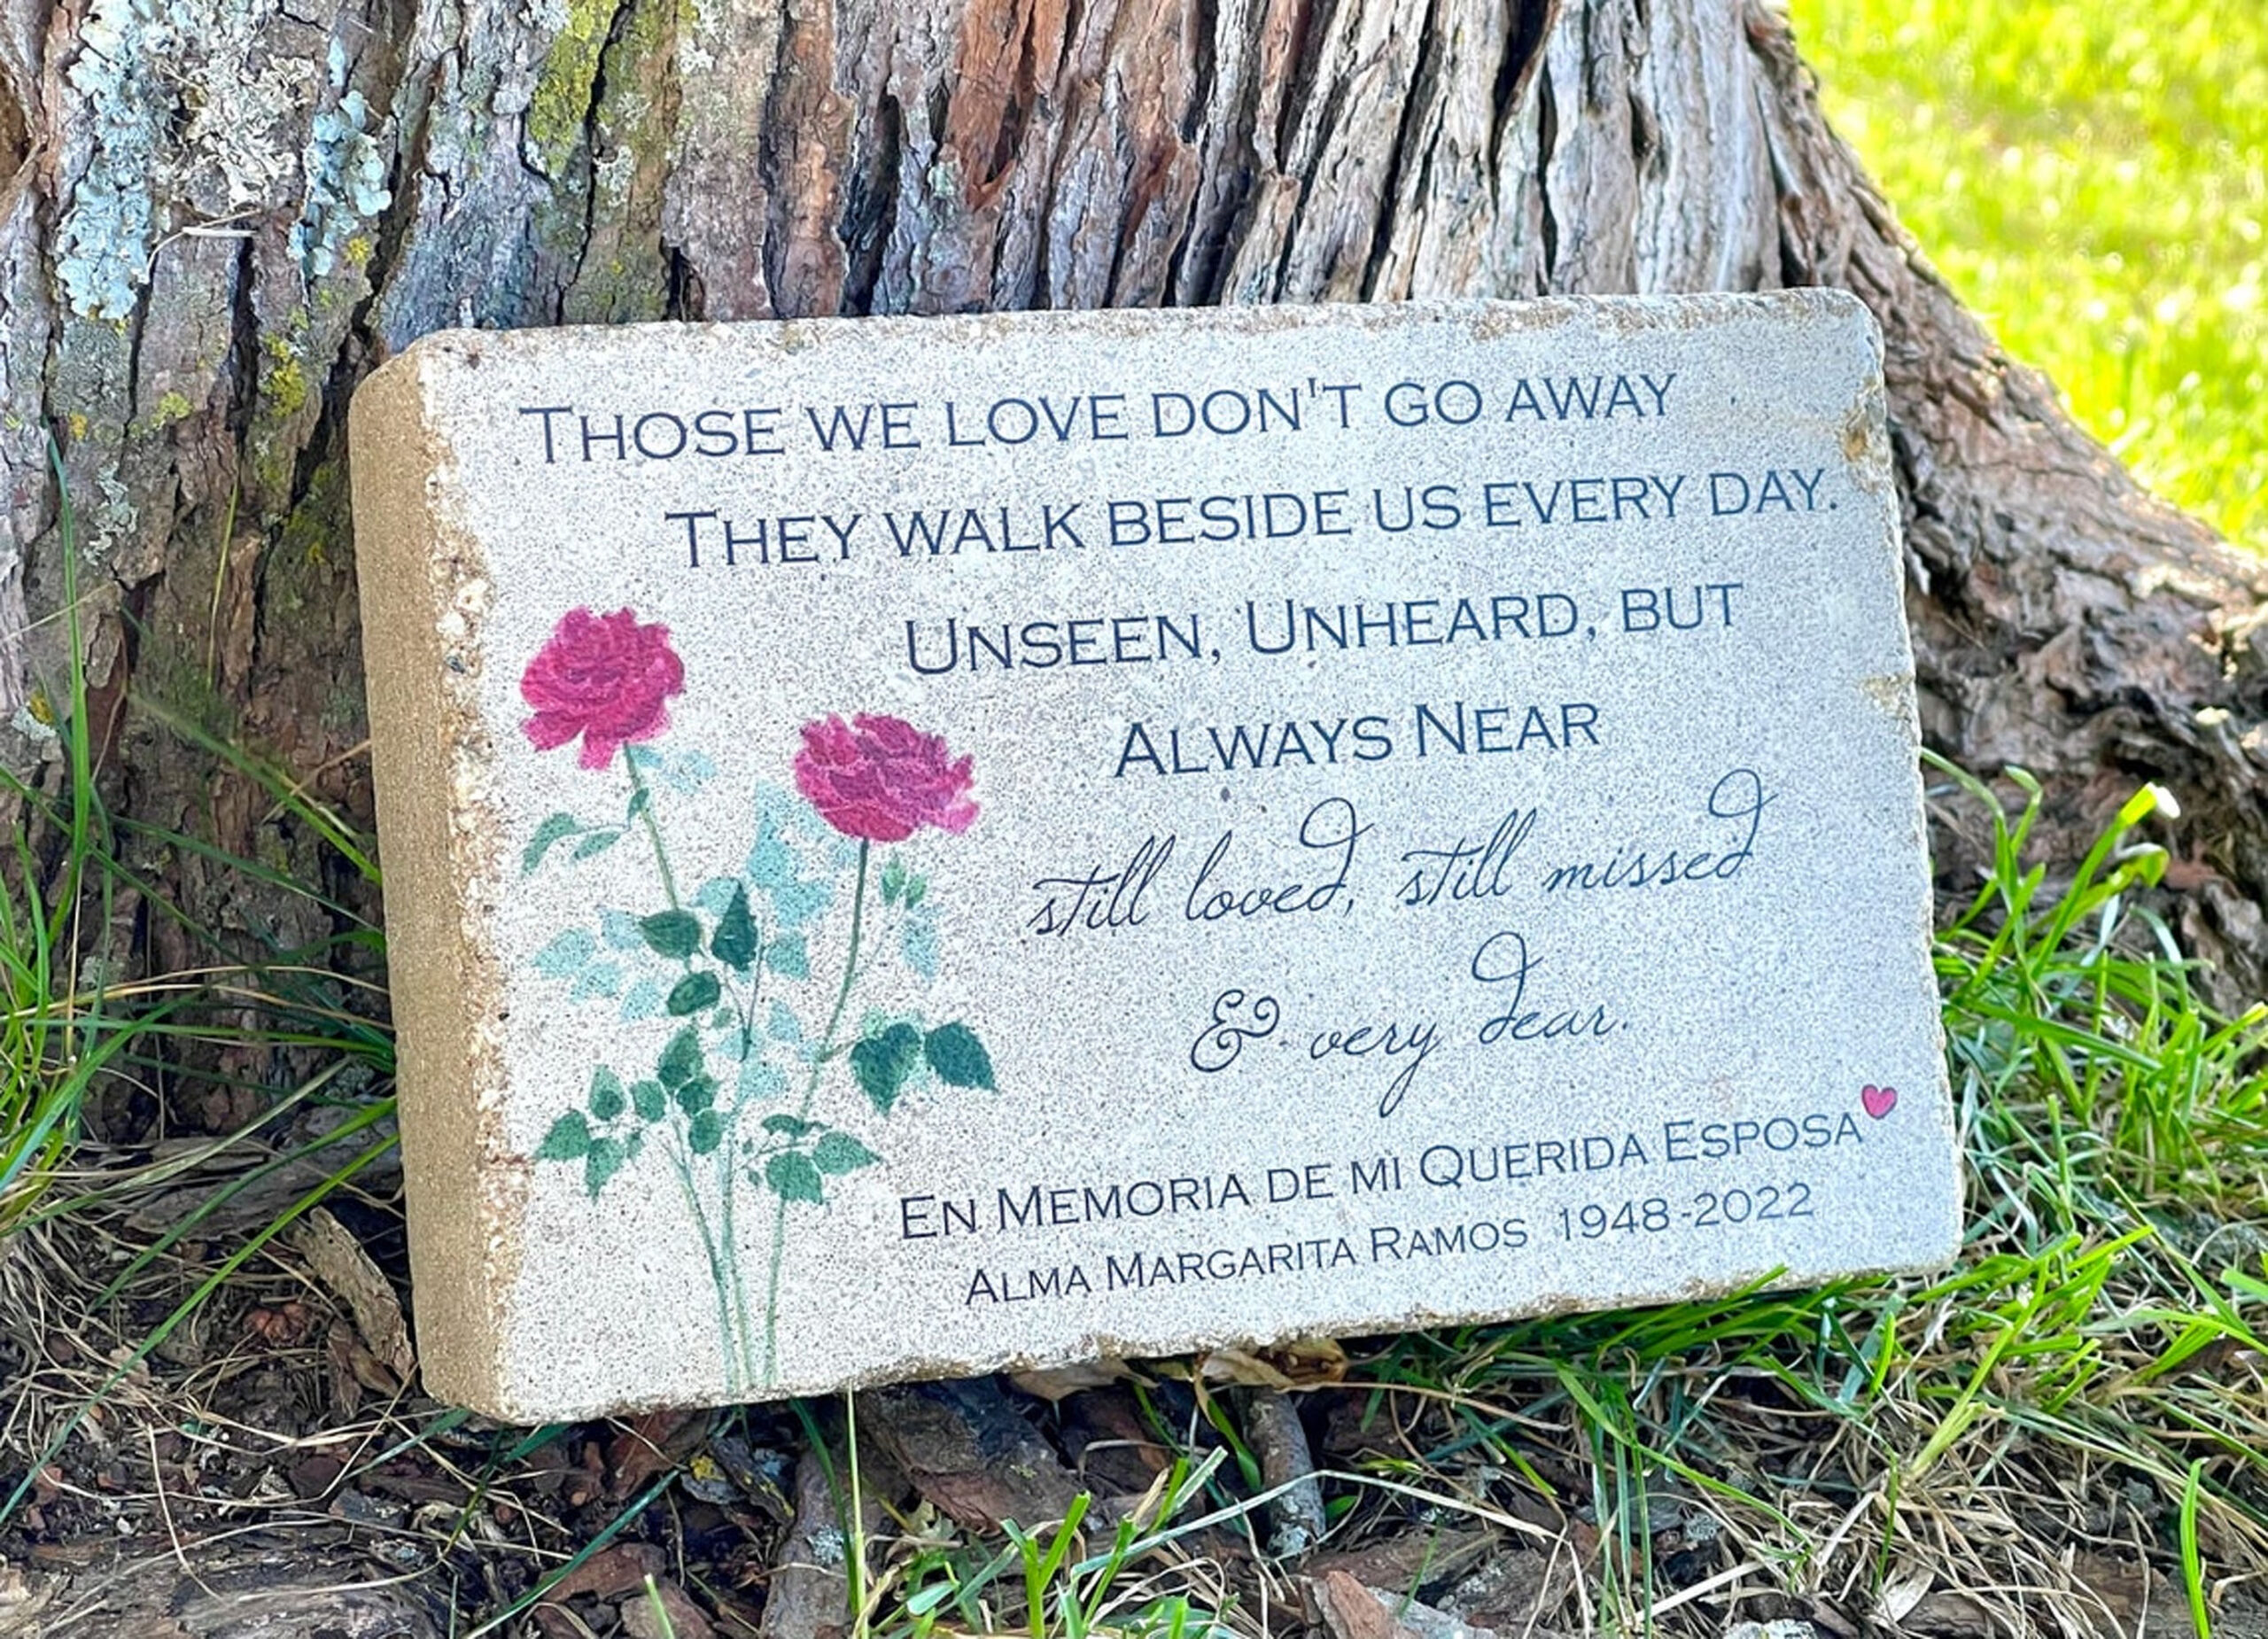 Those we love don't go away
They walk beside us every day.
Unseen, Unheard, but
Always Near
still loved, still missed
& very dear.
En Memoria de mi Querida Esposa
Alma Margarita Ramos 1948-2022